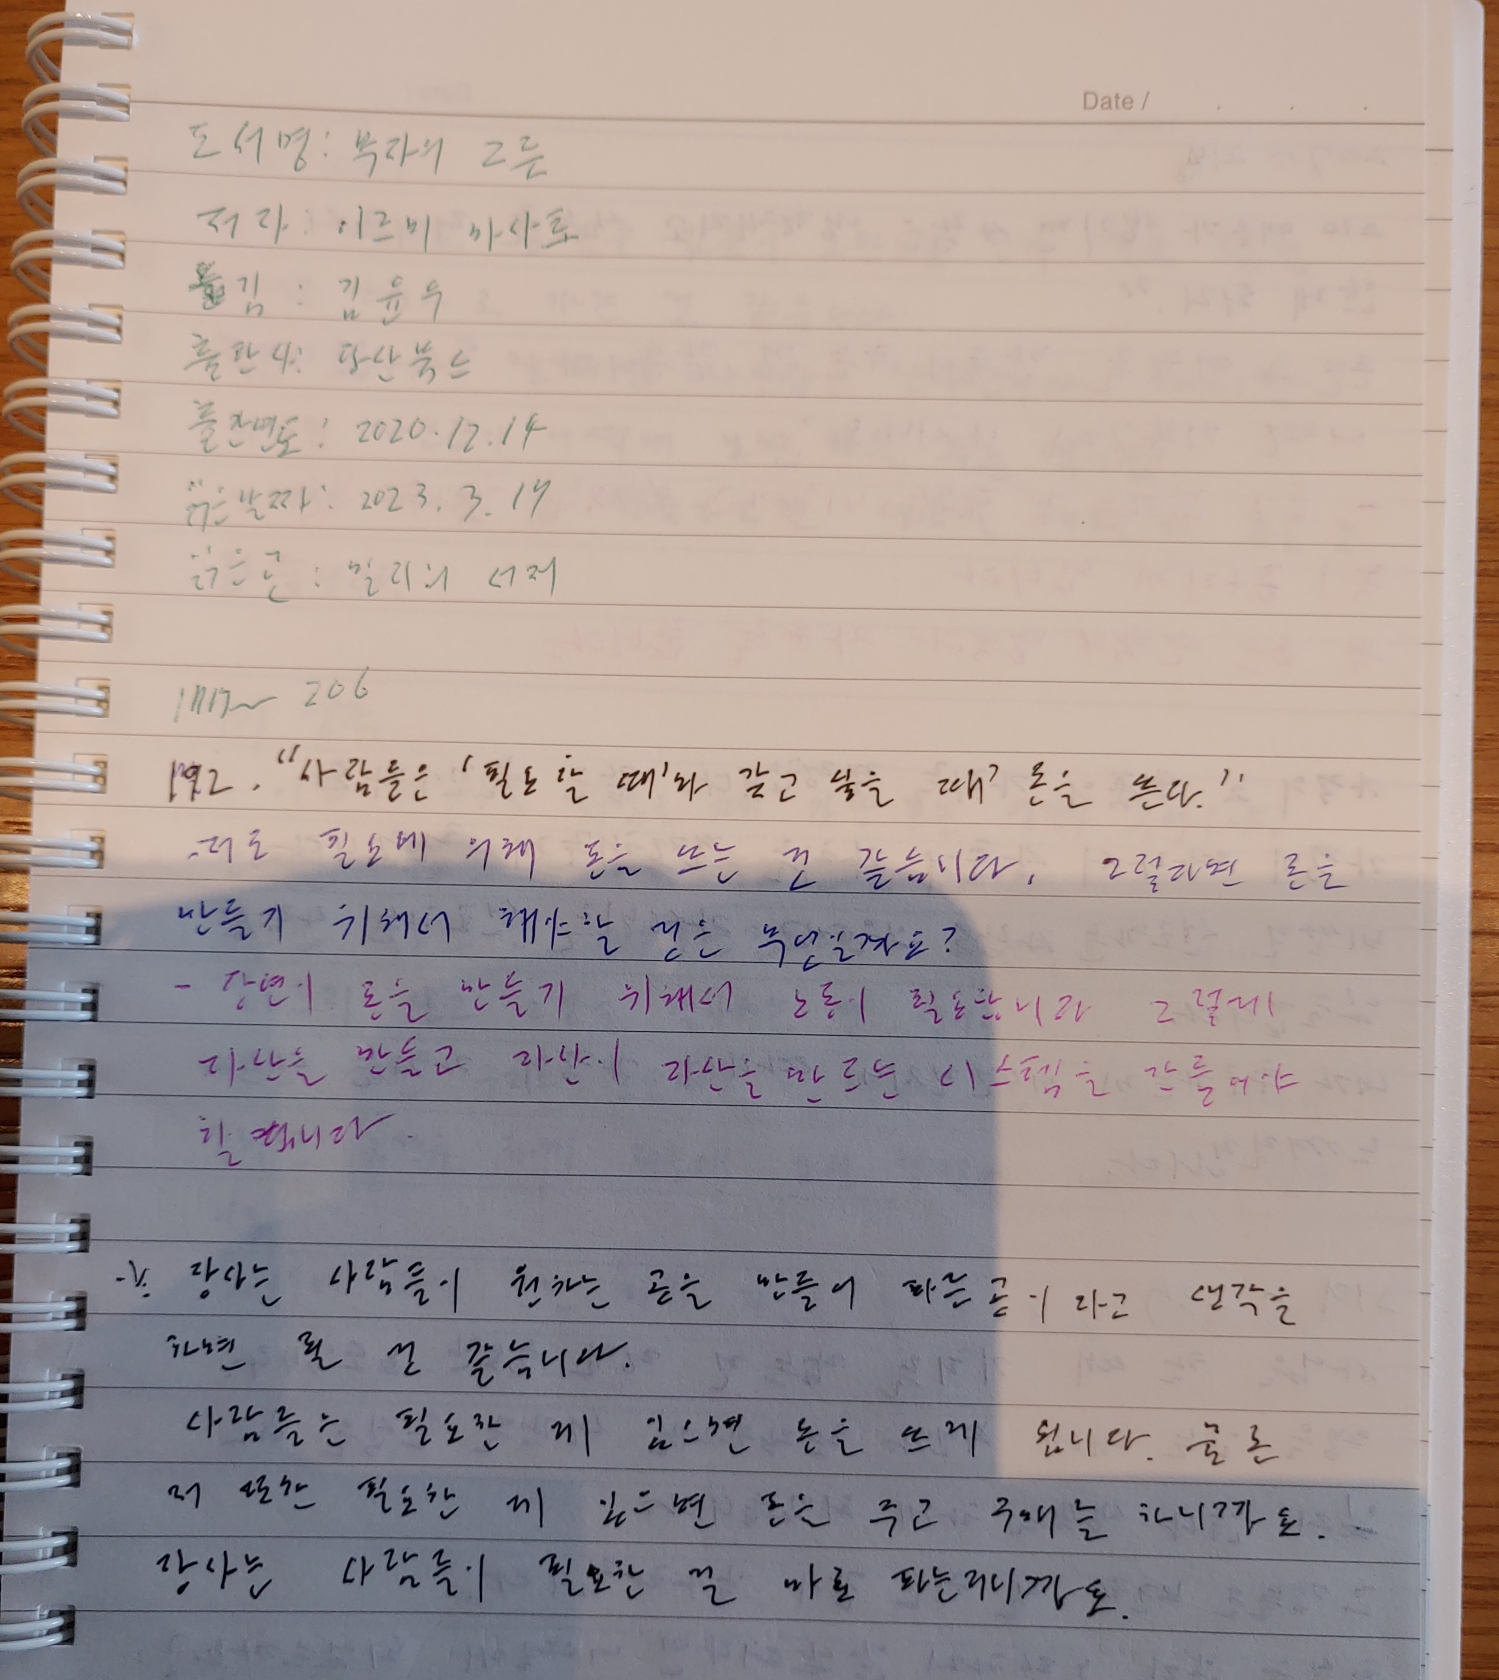 Date /
도서명: 부자의 그릇
저자: 이즈미 마사토
옮김: 김윤수
출판사: 다산북스
출간연도: 2020.12.14
읽은날짜: 2023. 3. 17
읽은곳: 밀리의 서재
206
192. "사람들은 '필요할 때'와 갖고 싶을 때' 돈을 쓴다."
저도 필요에 위해 돈을 쓰는 건 같습니다. 그렇다면 돈을
만들기 위해서 해야할 것은 무엇일까요?
- 당연히 돈을 만들기 위해서 노동이 필요합니다 그렇게
자산을 만들고 자산이 자산을 만드는 시스템을 만들어야
할 겁니다.
장사는 사람들이 원하는 곳을 만들어 파는 곳이라고 생각을
하면 될 것 같습니다.
사람들은 필요한 게 있으면 돈을 쓰게 됩니다. 물론
저 또한 필요한 게 있으면 돈을 주고 구매를 하니까요.
장사는 사람들이 필요한 걸 바로 파는거니까요.